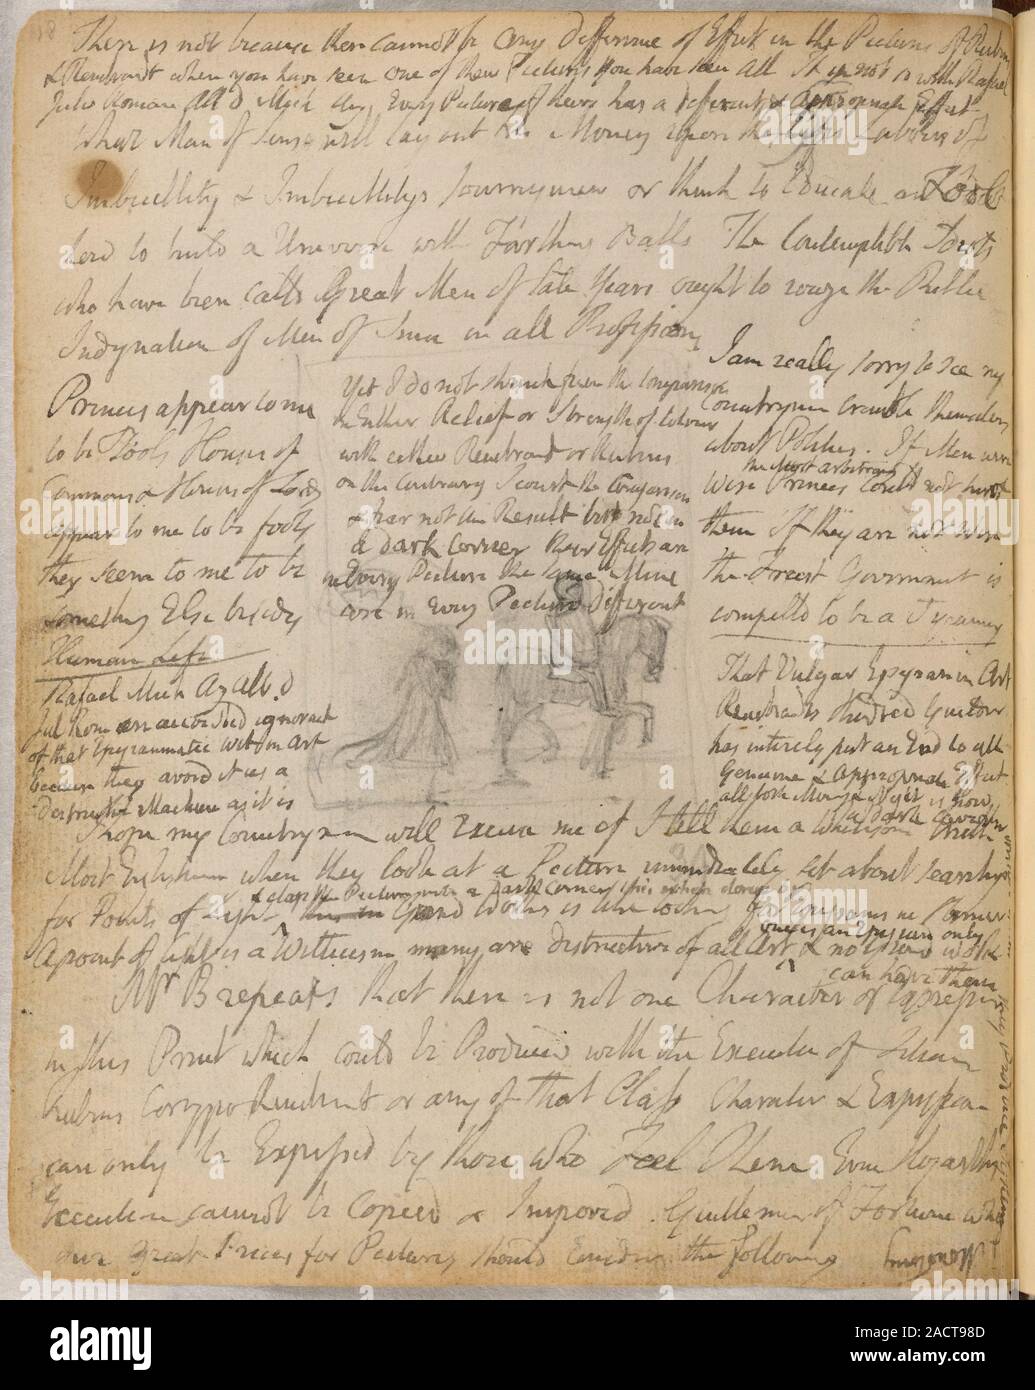 There is not because there cannot be any Difference of Effect in the Pictures of Rubens
& Rembrandt when you have seen one of their Pictures you have seen all It is not so with Rafael
Julio Romano Alb. D Mich Ang Every Picture of theirs has a different & appropriate Effect
What Man of Sense will lay out his Money upon the Life's Labours of
Imbecility & Imbecility's Journeymen or think to Educate a Fool
how to build a Universe with Farthing Balls The Contemptible Idiots
who have been calld Great Men of late Years ought to rouze the Public
Indignation of Men of Sense in all Professions
Princes appear to me
to be Fools Houses of
Commons & Houses of Lords
appear to me to be fools
they seem to me to be
something Else besides
Human Life
Rafael Mich Ang Alb. D
Jul Rom are accounted ignorant
of that Epigrammatic Wit in Art
because they avoid it as a
destructive Machine as it is
Yet I do not shrink from the comparison
in Either Relief or Strength of Colour
with either Rembrandt or Rubens
on the contrary I court the Comparison
& fear not the Result but not in
a dark corner their Effects are
in Every Picture the same Mine
are in Every Picture different
I am really sorry to see my
Countrymen trouble themselves
about Politics. If Men were
Wise the Most arbitrary Princes could not hurt
them If they are not Wise
the Freest Government is
compelld to be a Tyranny
That Vulgar Epigram in Art
Rembrandts Hundred Guilders
has intirely put an End to all
Genuine & appropriate Effect
all both Morning & Night is now
a dark cavern
I hope my Countrymen will Excuse me if I tell them a Wholesom truth
Most Englishmen when they look at a Picture immediately set about searching
for Points of Light & clap the Picture into a dark corner this when done by
Grand Works is like looking for Epigrams in Homer
A point of light is a Witticism many are destructive of all Art one is an Epigram only & no Grand Work
can have them
Mr B repeats that there is not one Character or Expression
in this Print which could be Produced with the Execution of Titian
Rubens Coreggio Rembrandt or any of that Class Character & Expression
can only be Expressed by those who Feel Them Even Hogarths
Execution cannot be Copied or Improved. Gentlemen of Fortune who
give Great Prices for Pictures should Consider the following
alamy
Image ID: 2ACT98D
www.alamy.com